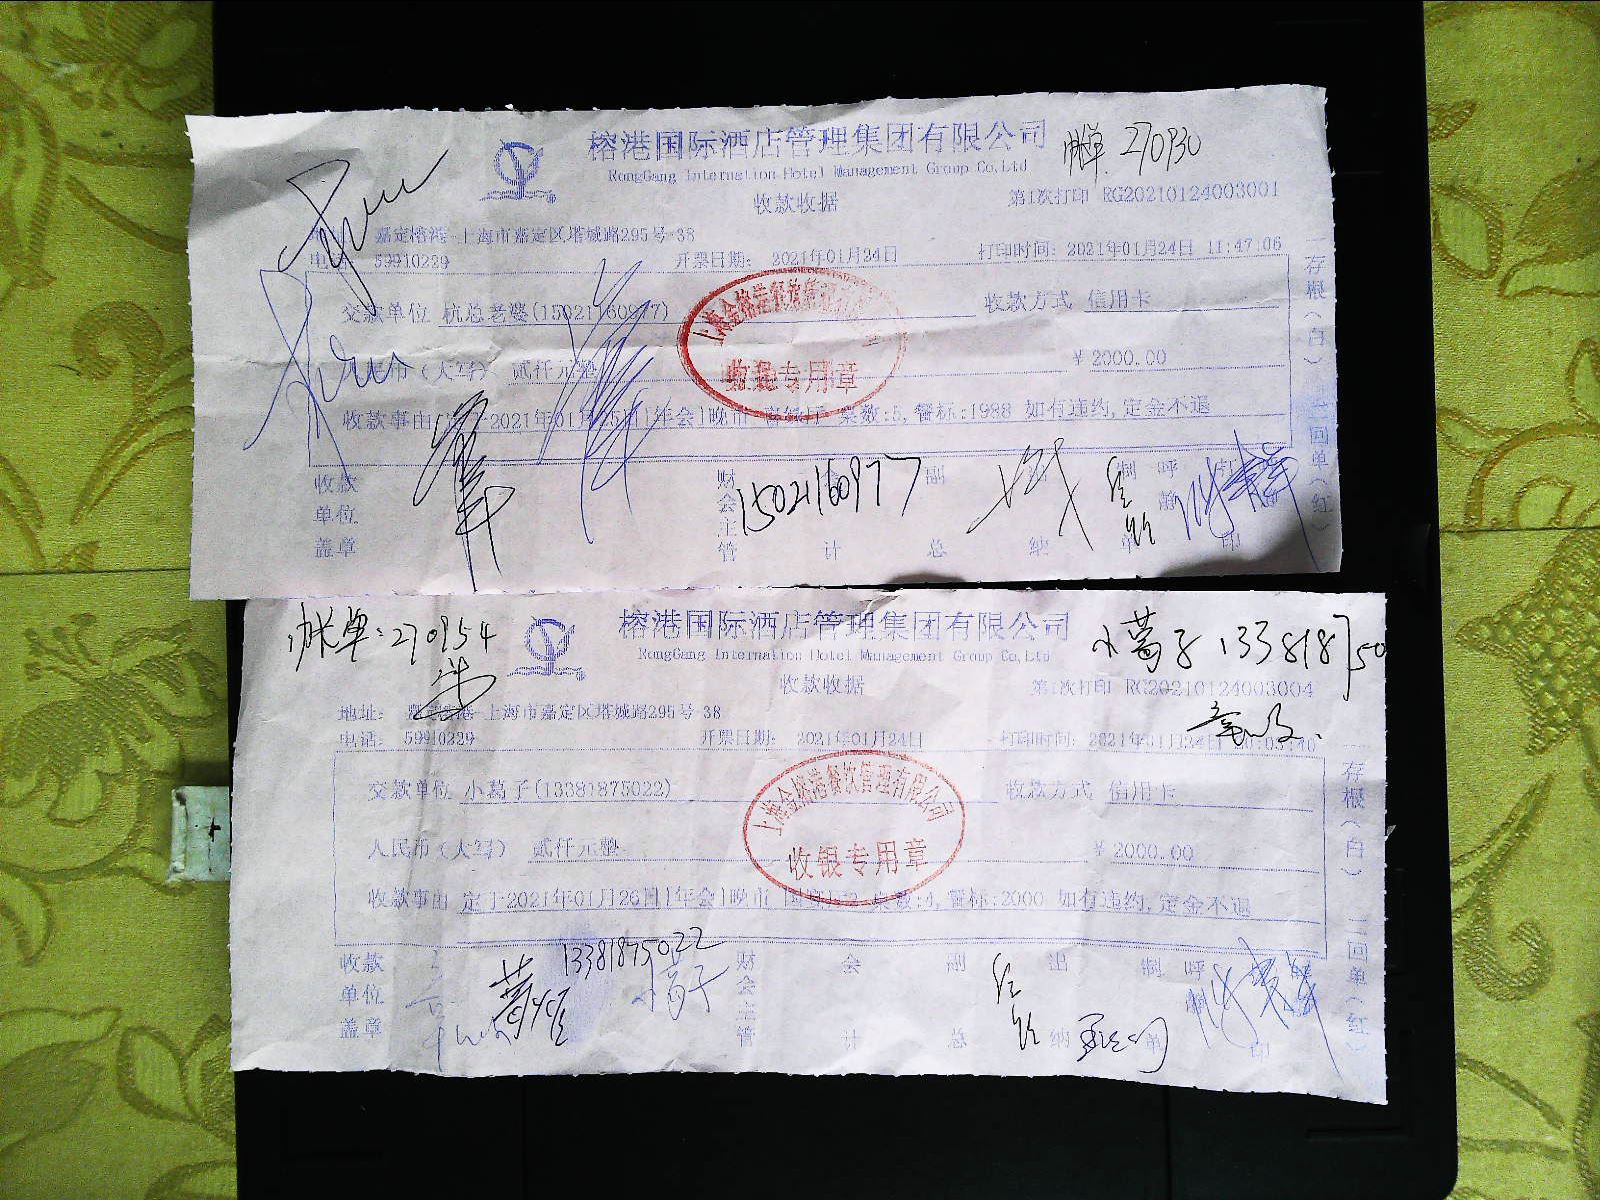 榕港国际酒店管理集团有限公司
RongGang Internation Hotel Management Group Co,Ltd
帐单: 270930
收款收据
第1次打印 RG20210124003001
地址: 嘉定榕港-上海市嘉定区塔城路295号-38
电话: 59910229 开票日期: 2021年01月24日 打印时间: 2021年01月24日 11:47:06
交款单位 杭总老婆(15021160977) 收款方式 信用卡
人民币(大写) 贰仟元整 ¥2000.00
收款事由 定于2021年01月25日[年会]晚市 桌数:5,餐标:1988 如有违约,定金不退
收款单位盖章 财会主管 会计 副总 出纳 制单 呼静 打印
15021160977
上海金榕港餐饮管理有限公司
收银专用章
存根(白) 二回单(红)
帐单: 270954
榕港国际酒店管理集团有限公司
RongGang Internation Hotel Management Group Co,Ltd
小葛子 133818750
收款收据
第1次打印 RG20210124003004
地址: 嘉定榕港-上海市嘉定区塔城路295号-38
电话: 59910229 开票日期: 2021年01月24日 打印时间: 2021年01月24日
交款单位 小葛子(13381875022) 收款方式 信用卡
人民币(大写) 贰仟元整 ¥2000.00
收款事由 定于2021年01月26日[年会]晚市 国宴厅2 桌数:4,餐标:2000 如有违约,定金不退
上海金榕港餐饮管理有限公司
收银专用章
13381875022
小葛子
收款单位盖章 财会主管 会计 副总 出纳 制单 呼静 打印
存根(白) 二回单(红)